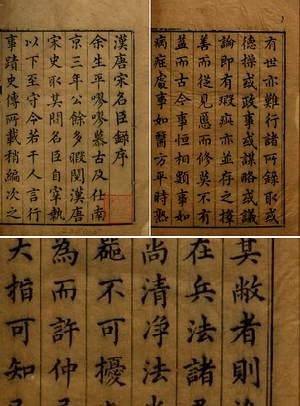 漢唐宋名臣錄序
余生平嘐嘐慕古及仕南
京三年公餘多暇閱漢唐
宋史取其間名臣自宰執
以下至守令若干人言行
事蹟史傳所載稍編次之
有世亦難行諸所錄或
德操或政事或謀略或議
論即有瑕亦並存之擇
善而從見惡而修莫不有
益而古今事恒相類事如
病症處事如醫方平時熟
其敝者則
在兵法諸
尚清净法
不可擾
為而許仲
大指可知